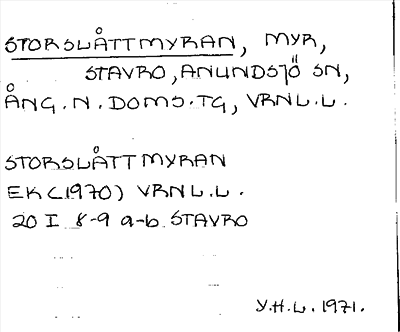 STORSLÅTTMYRAN, MYR,
STAVRO, ANUNDSJÖ SN,
ÅNG. N. DOMS. TG, VRNL.L.
STORSLÅTTMYRAN
EK (1970) VRNL.L.
20 I 8-9 a-b STAVRO
Y.H.L. 1971.